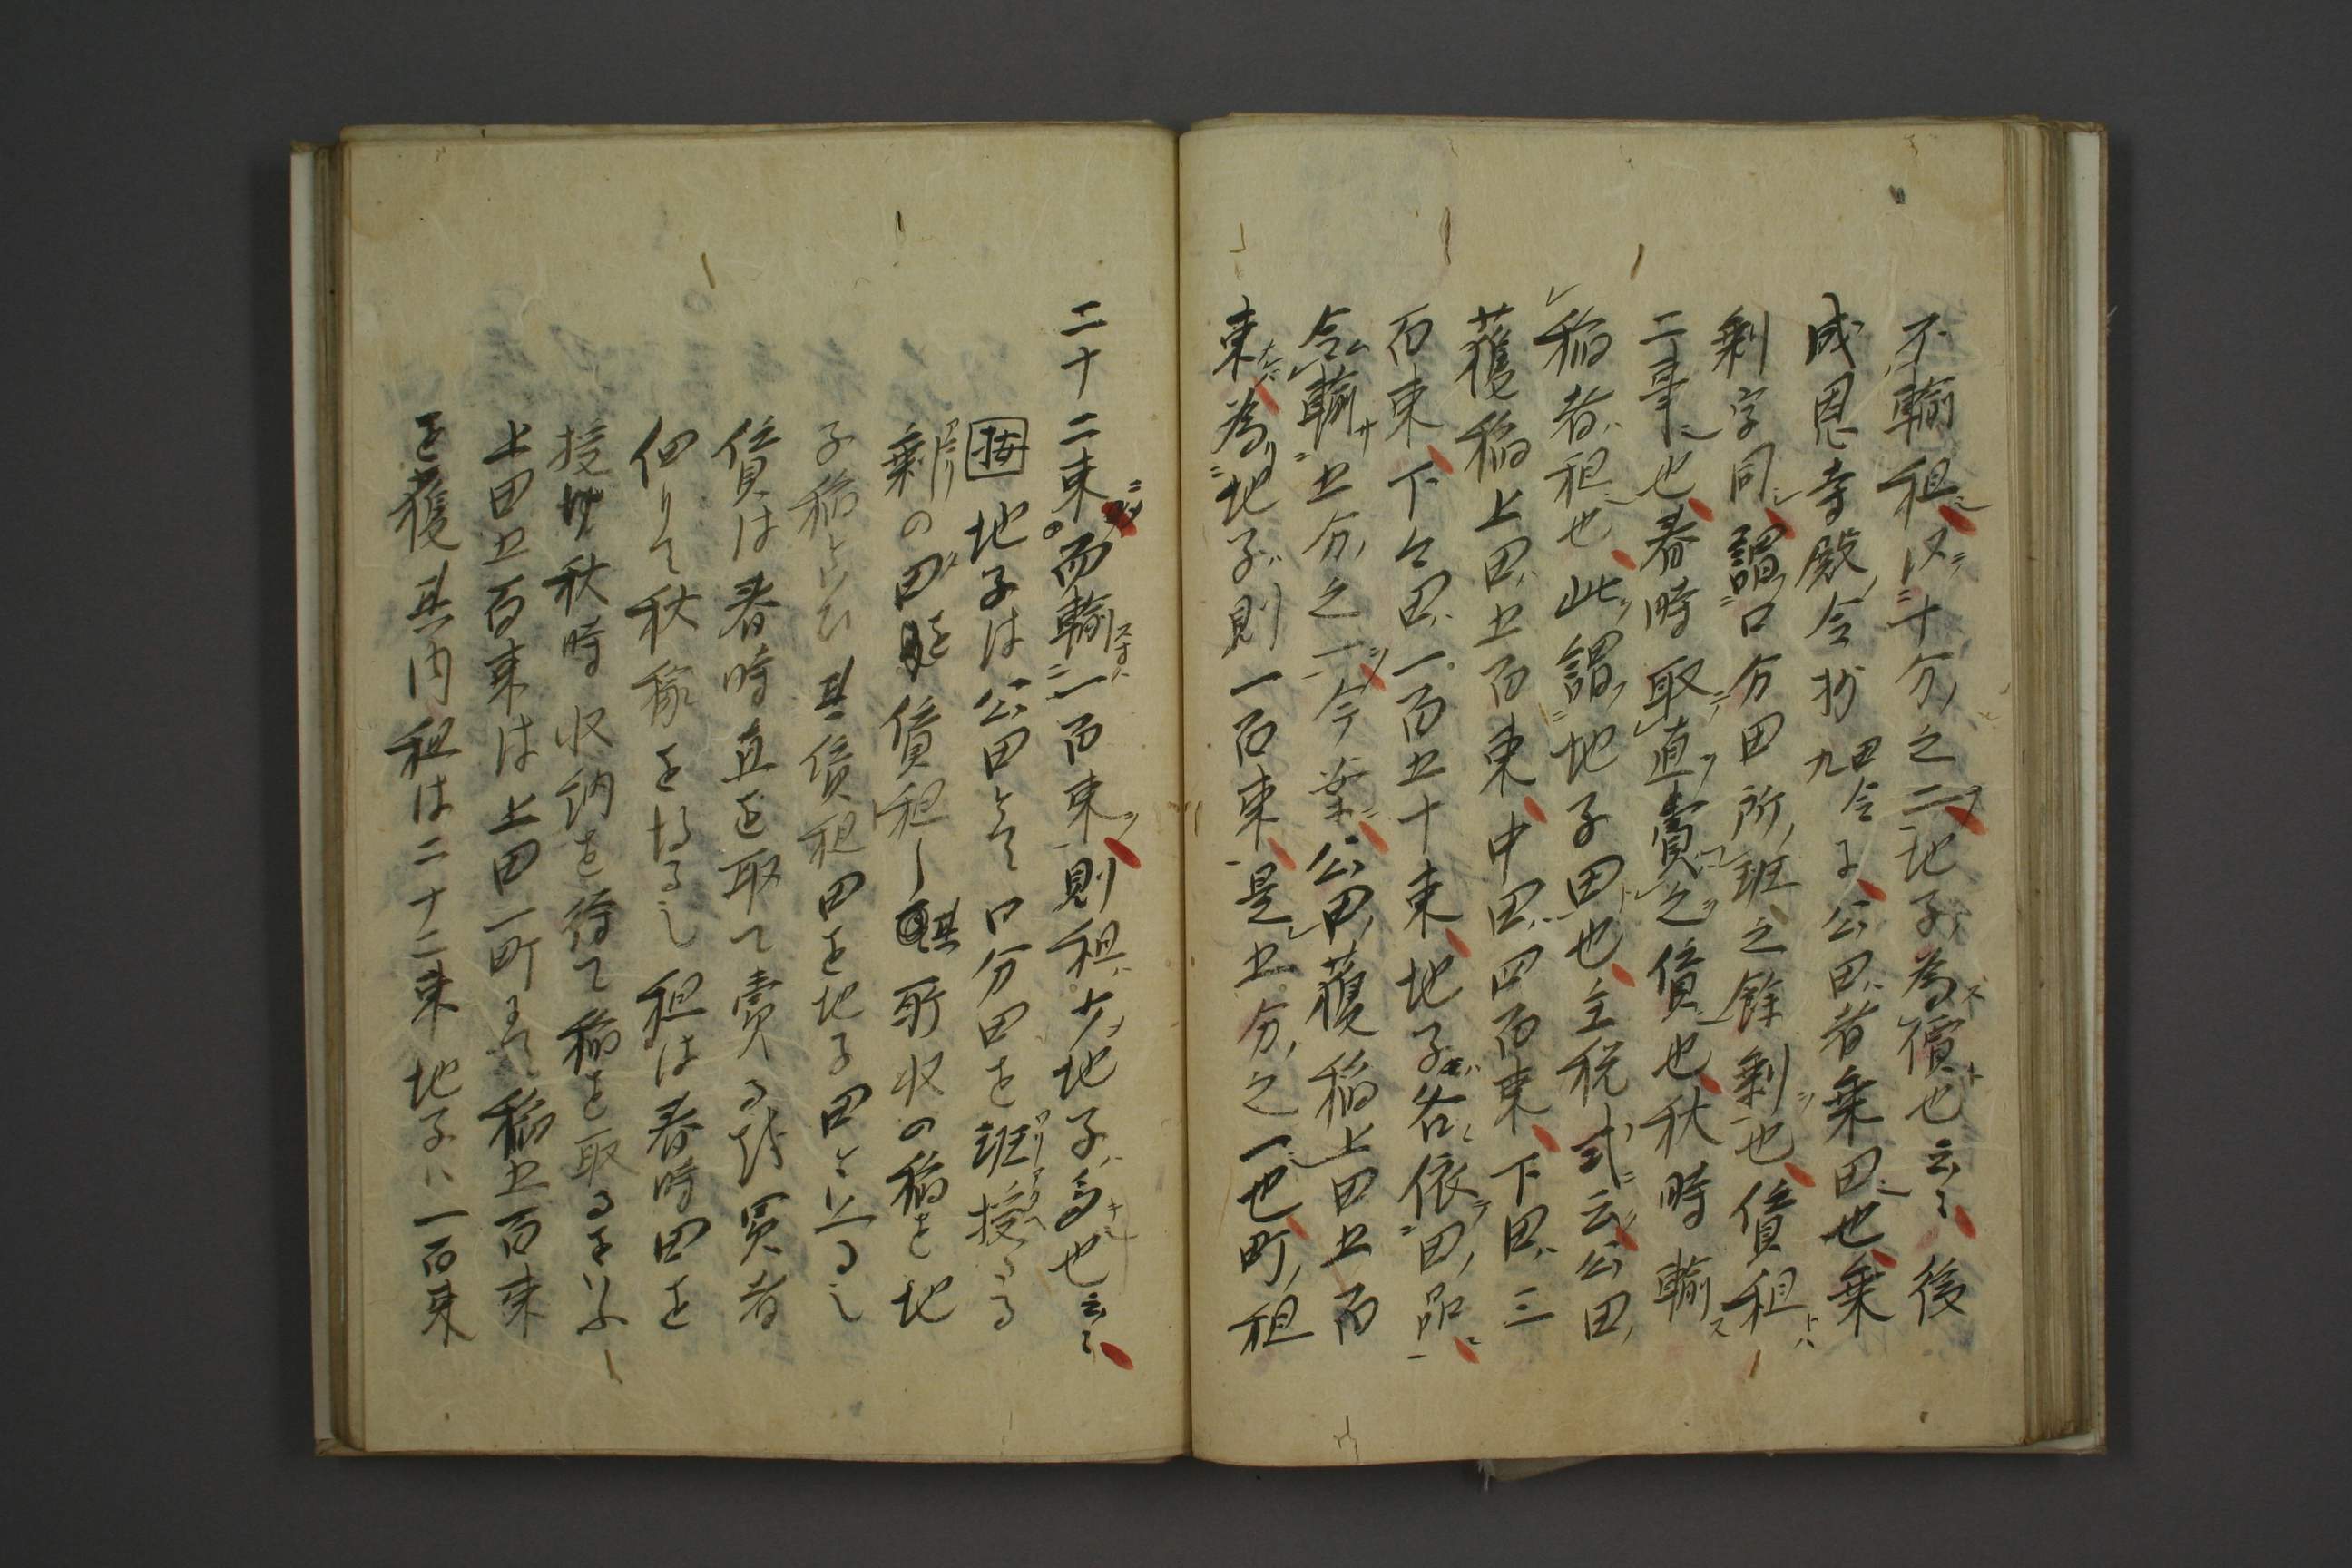 不輸租以十分之二地子為價也云々後
成恩寺殿令抄田令九に公田者乗田也乗
剰字同謂口分田所班之餘剰也賃租
二事也春時取直賣之賃也秋時輸
稲者租也此謂地子田也主税式云公田
獲稲上田五百束中田四百束下田三
百束下々田一百五十束地子各依田品
令輸五分之一今案公田獲稲上田五百
束為地子則一百束是五分之一也町租
二十二束而輸一百束則租少地子多也云々
按地子は公田とて口分田を班授る
剰の田を賃租し其所収の稲を地
子稲といひ其賃租田を地子田と云るし
賃は春時直を取て賣る時買者
佃りて秋稼を得るし租は春時田を
授け秋時収納を待て稲を取るを以ふ
上田五百束は上田一町にて稲五百束
を獲其内租は二十二束地子ハ一百束